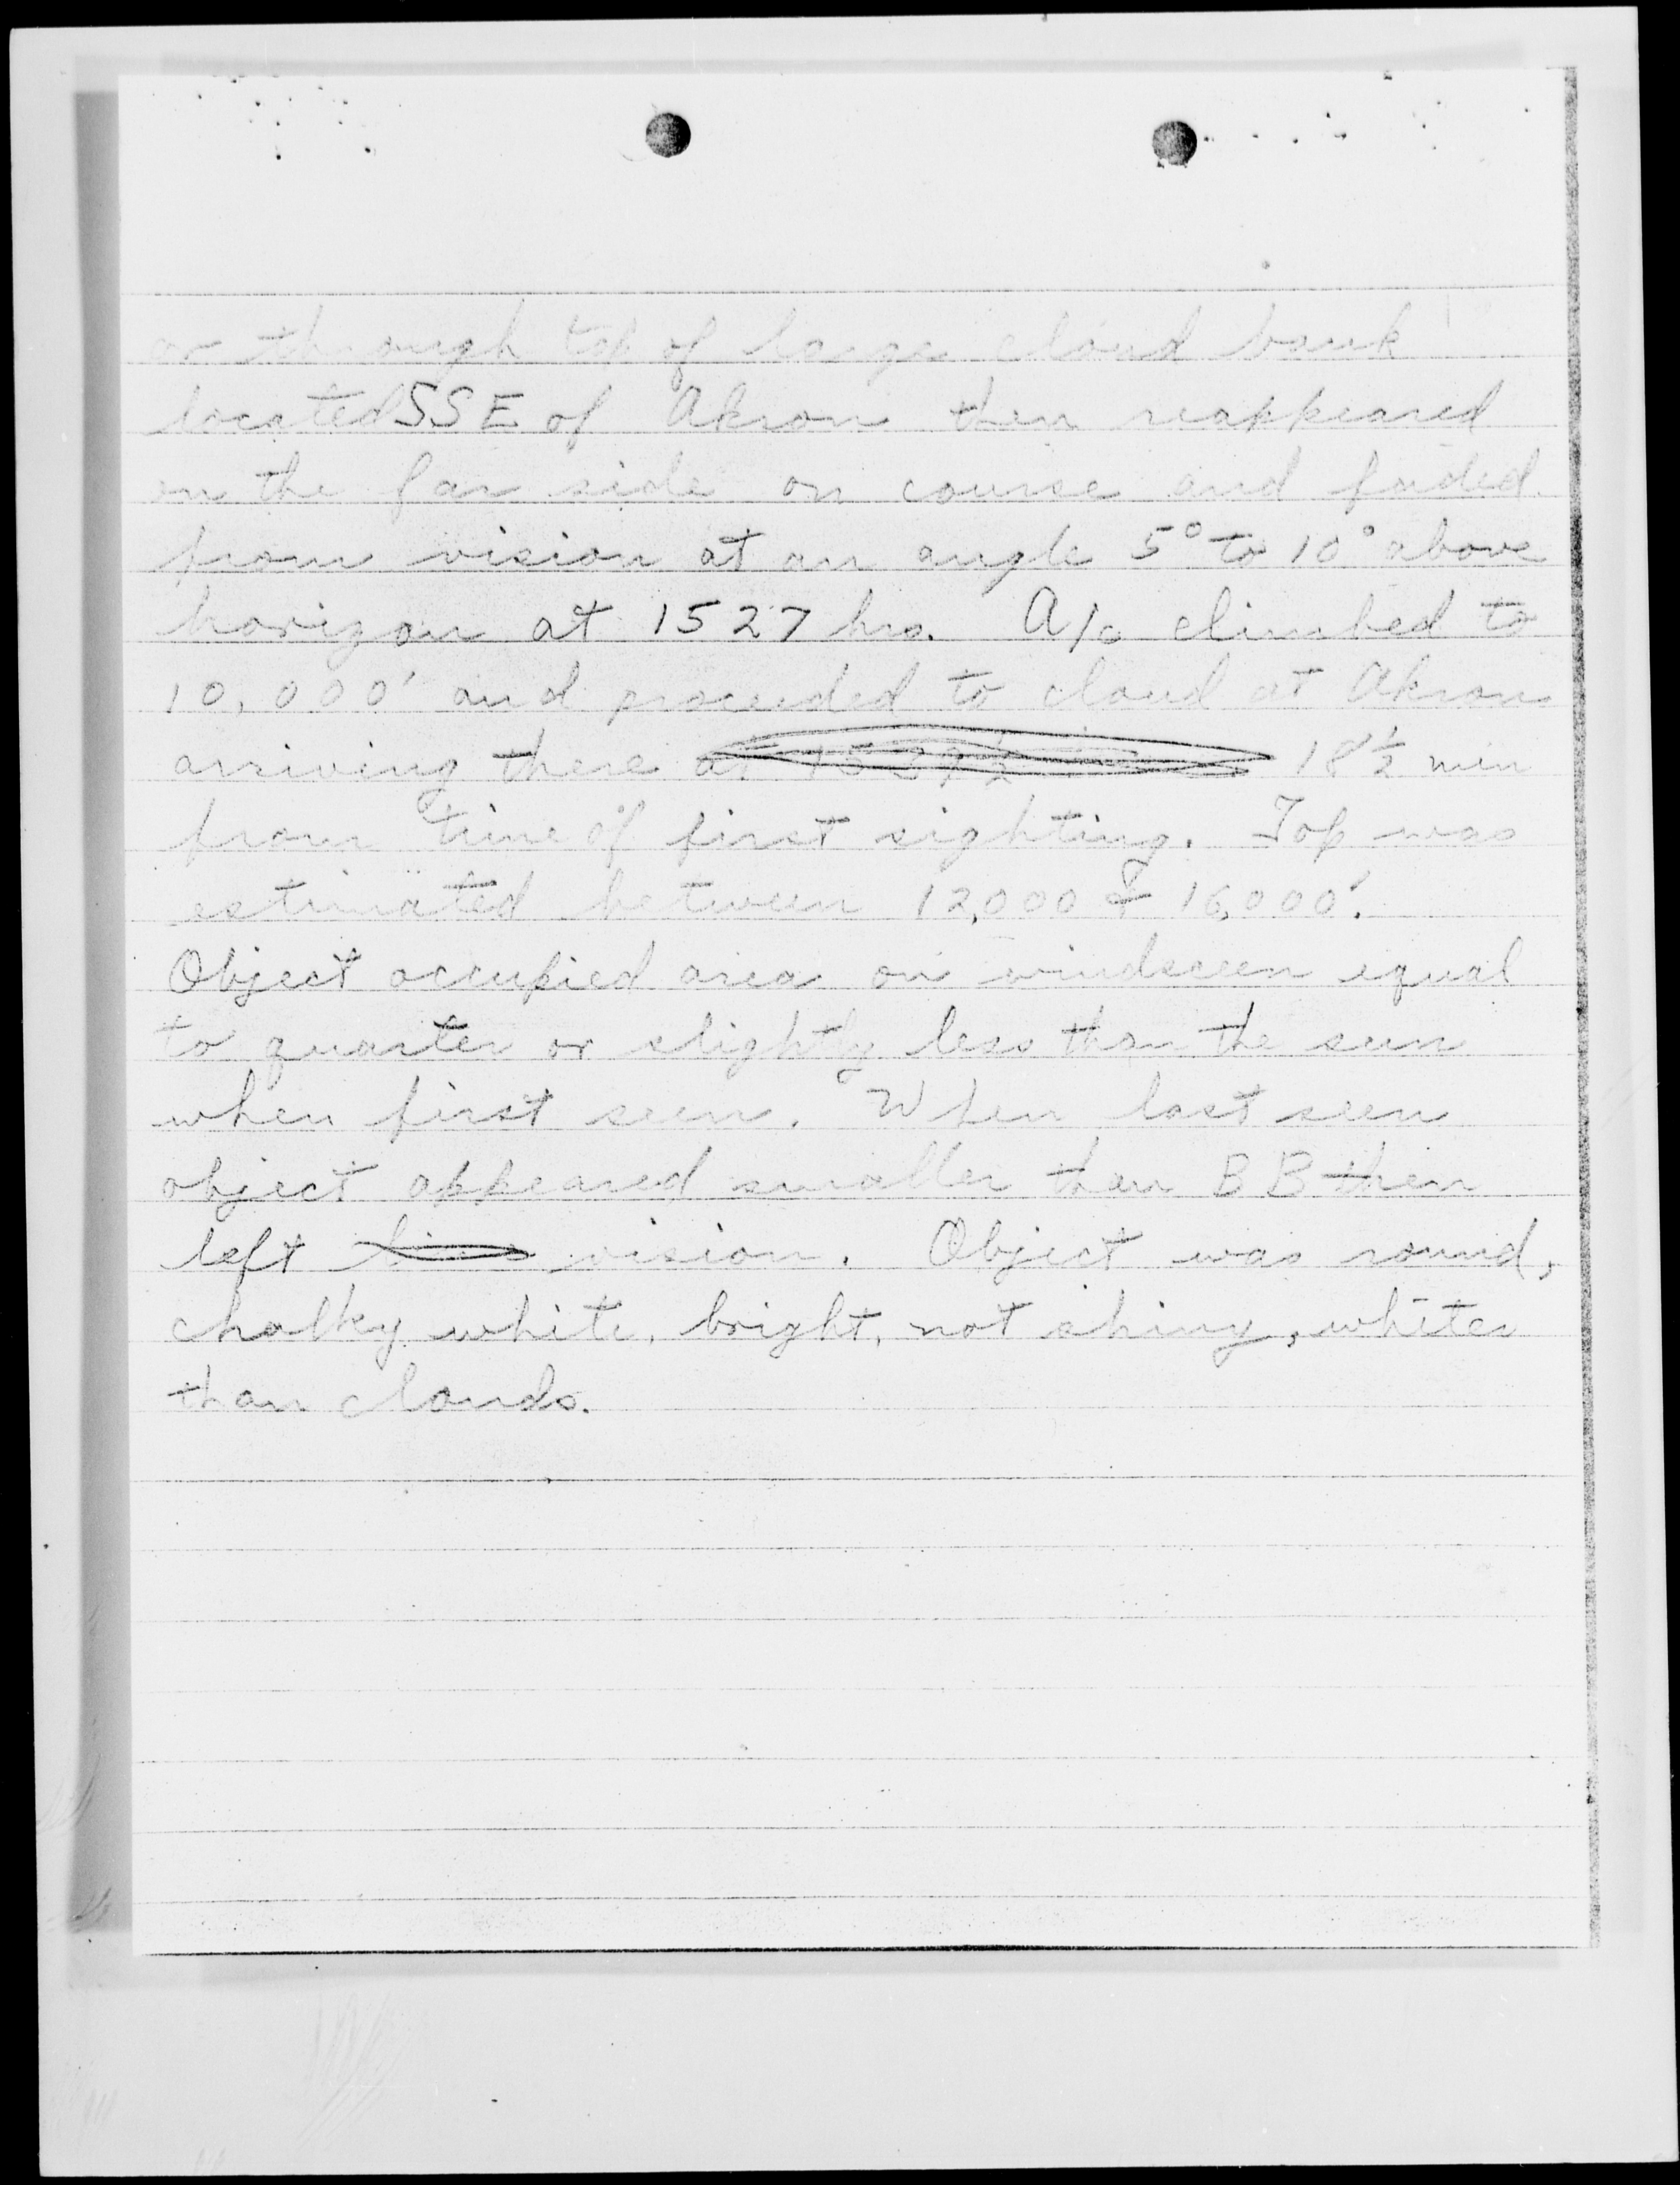 or through top of large cloud bank
located SSE of Akron then reappeared
on the far side on course and faded
from vision at an angle 5° to 10° above
horizon at 1527 hrs. A/c climbed to
10,000' and proceeded to cloud at Akron
arriving there at 18½ min
from time of first sighting. Top was
estimated between 12,000 & 16,000'.
Object occupied area on windsceen equal
to quarter or slightly less than the sun
when first seen. When last seen
object appeared smaller than BB then
left vision. Object was round,
chalky white, bright, not shiny, whiter
than clouds.